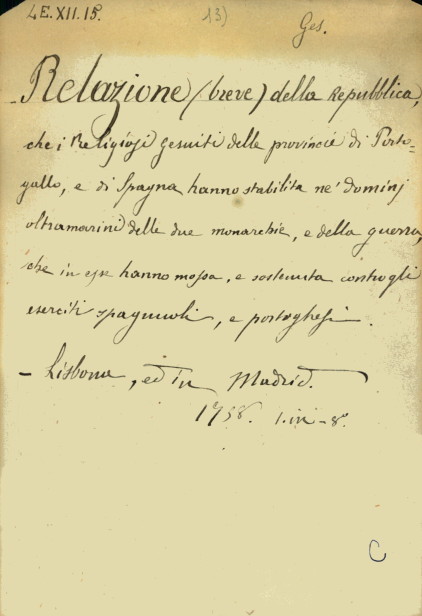 4E.XII.15.
13)
Ges.
Relazione (breve) della Repubblica,
che i Religiosi gesuiti delle provincie di Porto=
gallo, e di Spagna hanno stabilita ne' dominj
oltramarini delle due monarchie, e della guerra,
che in esse hanno mossa, e sostenuta contro gli
eserciti spagnuoli, e portoghesi.
- Lisbona, ed in Madrid.
1758. 1. in - 8°.
C